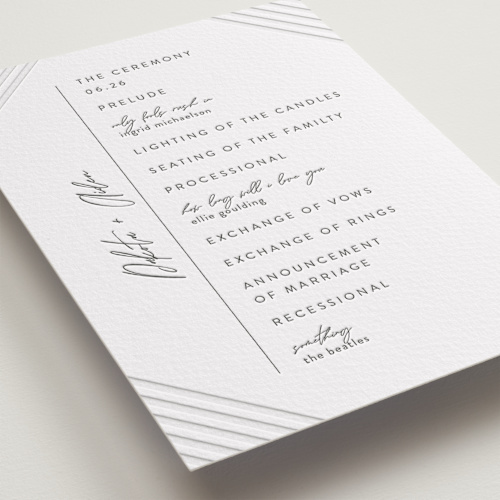 THE CEREMONY
06.26
PRELUDE
only fools rush in
ingrid michaelson
LIGHTING OF THE CANDLES
SEATING OF THE FAMILTY
PROCESSIONAL
how long will i love you
ellie goulding
EXCHANGE OF VOWS
EXCHANGE OF RINGS
ANNOUNCEMENT
OF MARRIAGE
RECESSIONAL
something
the beatles
Dakota +